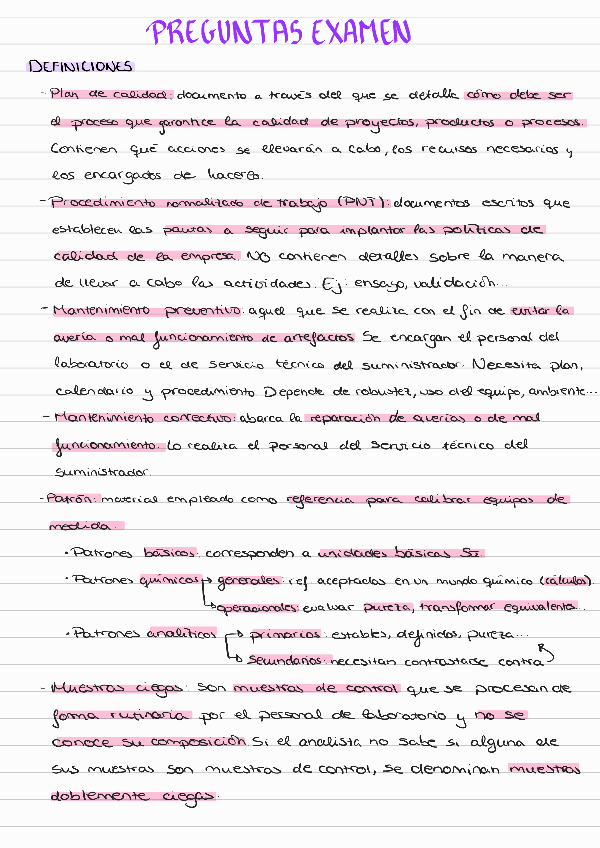 PREGUNTAS EXAMEN
DEFINICIONES
- Plan de calidad: documento a través del que se detalla cómo debe ser
el proceso que garantice la calidad de proyectos, productos o procesos.
Contienen qué acciones se llevarán a cabo, los recursos necesarios y
los encargados de hacerlo.
- Procedimiento normalizado de trabajo (PNT): documentos escritos que
establecen las pautas a seguir para implantar las políticas de
calidad de la empresa. NO contienen detalles sobre la manera
de llevar a cabo las actividades. Ej: ensayo, validación...
- Mantenimiento preventivo: aquel que se realiza con el fin de evitar la
avería o mal funcionamiento de artefactos. Se encargan el personal del
laboratorio o el de servicio técnico del suministrador. Necesita plan,
calendario y procedimiento. Depende de robustez, uso del equipo, ambiente...
- Mantenimiento correctivo: abarca la reparación de averías o de mal
funcionamiento. Lo realiza el personal del servicio técnico del
suministrador.
- Patrón: material empleado como referencia para calibrar equipos de
medida.
· Patrones básicos: corresponden a unidades básicas SI.
· Patrones químicos → generales: ref aceptadas en un mundo químico (cálculos).
→ operacionales: evaluar pureza, transformar equivalente...
· Patrones analíticos → primarios: estables, definidos, pureza...
→ secundarios: necesitan contrastarse contra
- Muestras ciegas: son muestras de control que se procesan de
forma rutinaria por el personal de laboratorio y no se
conoce su composición. Si el analista no sabe si alguna de
sus muestras son muestras de control, se denominan muestras
doblemente ciegas.